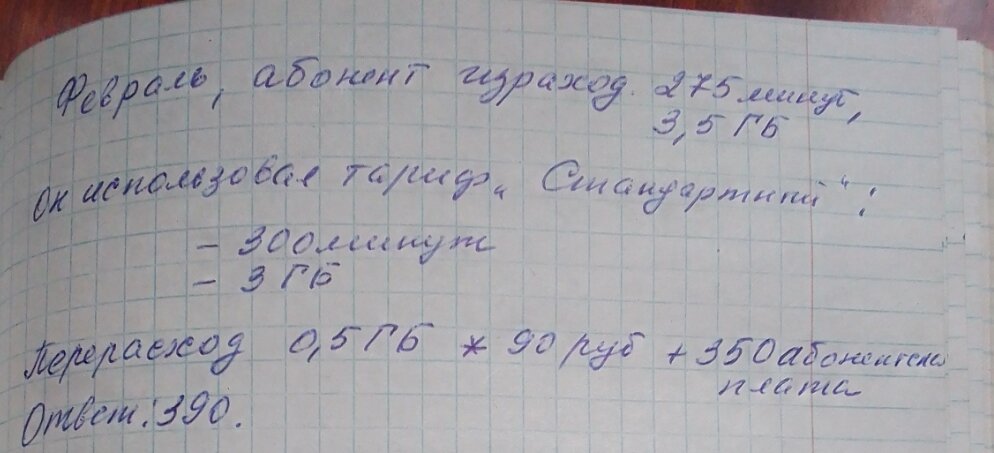 Февраль, абонент израход. 275 минут,
3,5 ГБ
Он использовал тариф „Стандартный“:
- 300 минут
- 3 ГБ
Перерасход 0,5 ГБ * 90 руб + 350 абонентская
плата
Ответ: 390.